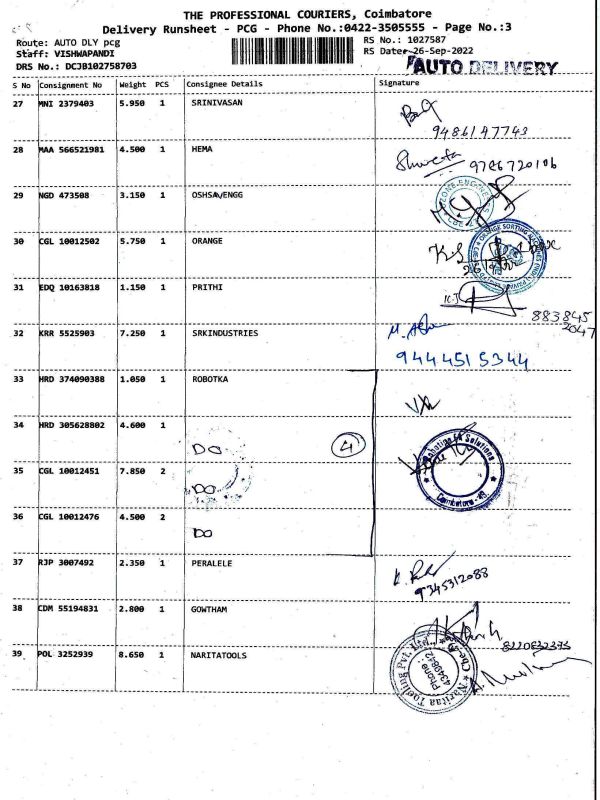 THE PROFESSIONAL COURIERS, Coimbatore
Delivery Runsheet - PCG - Phone No.:0422-3505555 - Page No.:3
Route: AUTO DLY pcg
RS No.: 1027587
Staff: VISHWAPANDI
RS Date: 26-Sep-2022
DRS No.: DCJB102758703
AUTO DELIVERY
S No Consignment No Weight PCS Consignee Details Signature
27 MNI 2379403 5.950 1 SRINIVASAN
9486147743
28 MAA 566521981 4.500 1 HEMA
Shweta 9786720106
29 NGD 473508 3.150 1 OSHSAVENGG
30 CGL 10012502 5.750 1 ORANGE
31 EDQ 10163818 1.150 1 PRITHI
883845
2047
32 KRR 5525903 7.250 1 SRKINDUSTRIES
9444515344
33 HRD 374090388 1.050 1 ROBOTKA
34 HRD 305628802 4.600 1
DO 4
35 CGL 10012451 7.850 2
DO
Solutions
Coimbatore
36 CGL 10012476 4.500 2
DO
37 RJP 3007492 2.350 1 PERALELE
9345312088
38 CDM 55194831 2.800 1 GOWTHAM
39 POL 3252939 8.650 1 NARITATOOLS
Naritaa Tooling Pvt. Ltd.,
Phone: